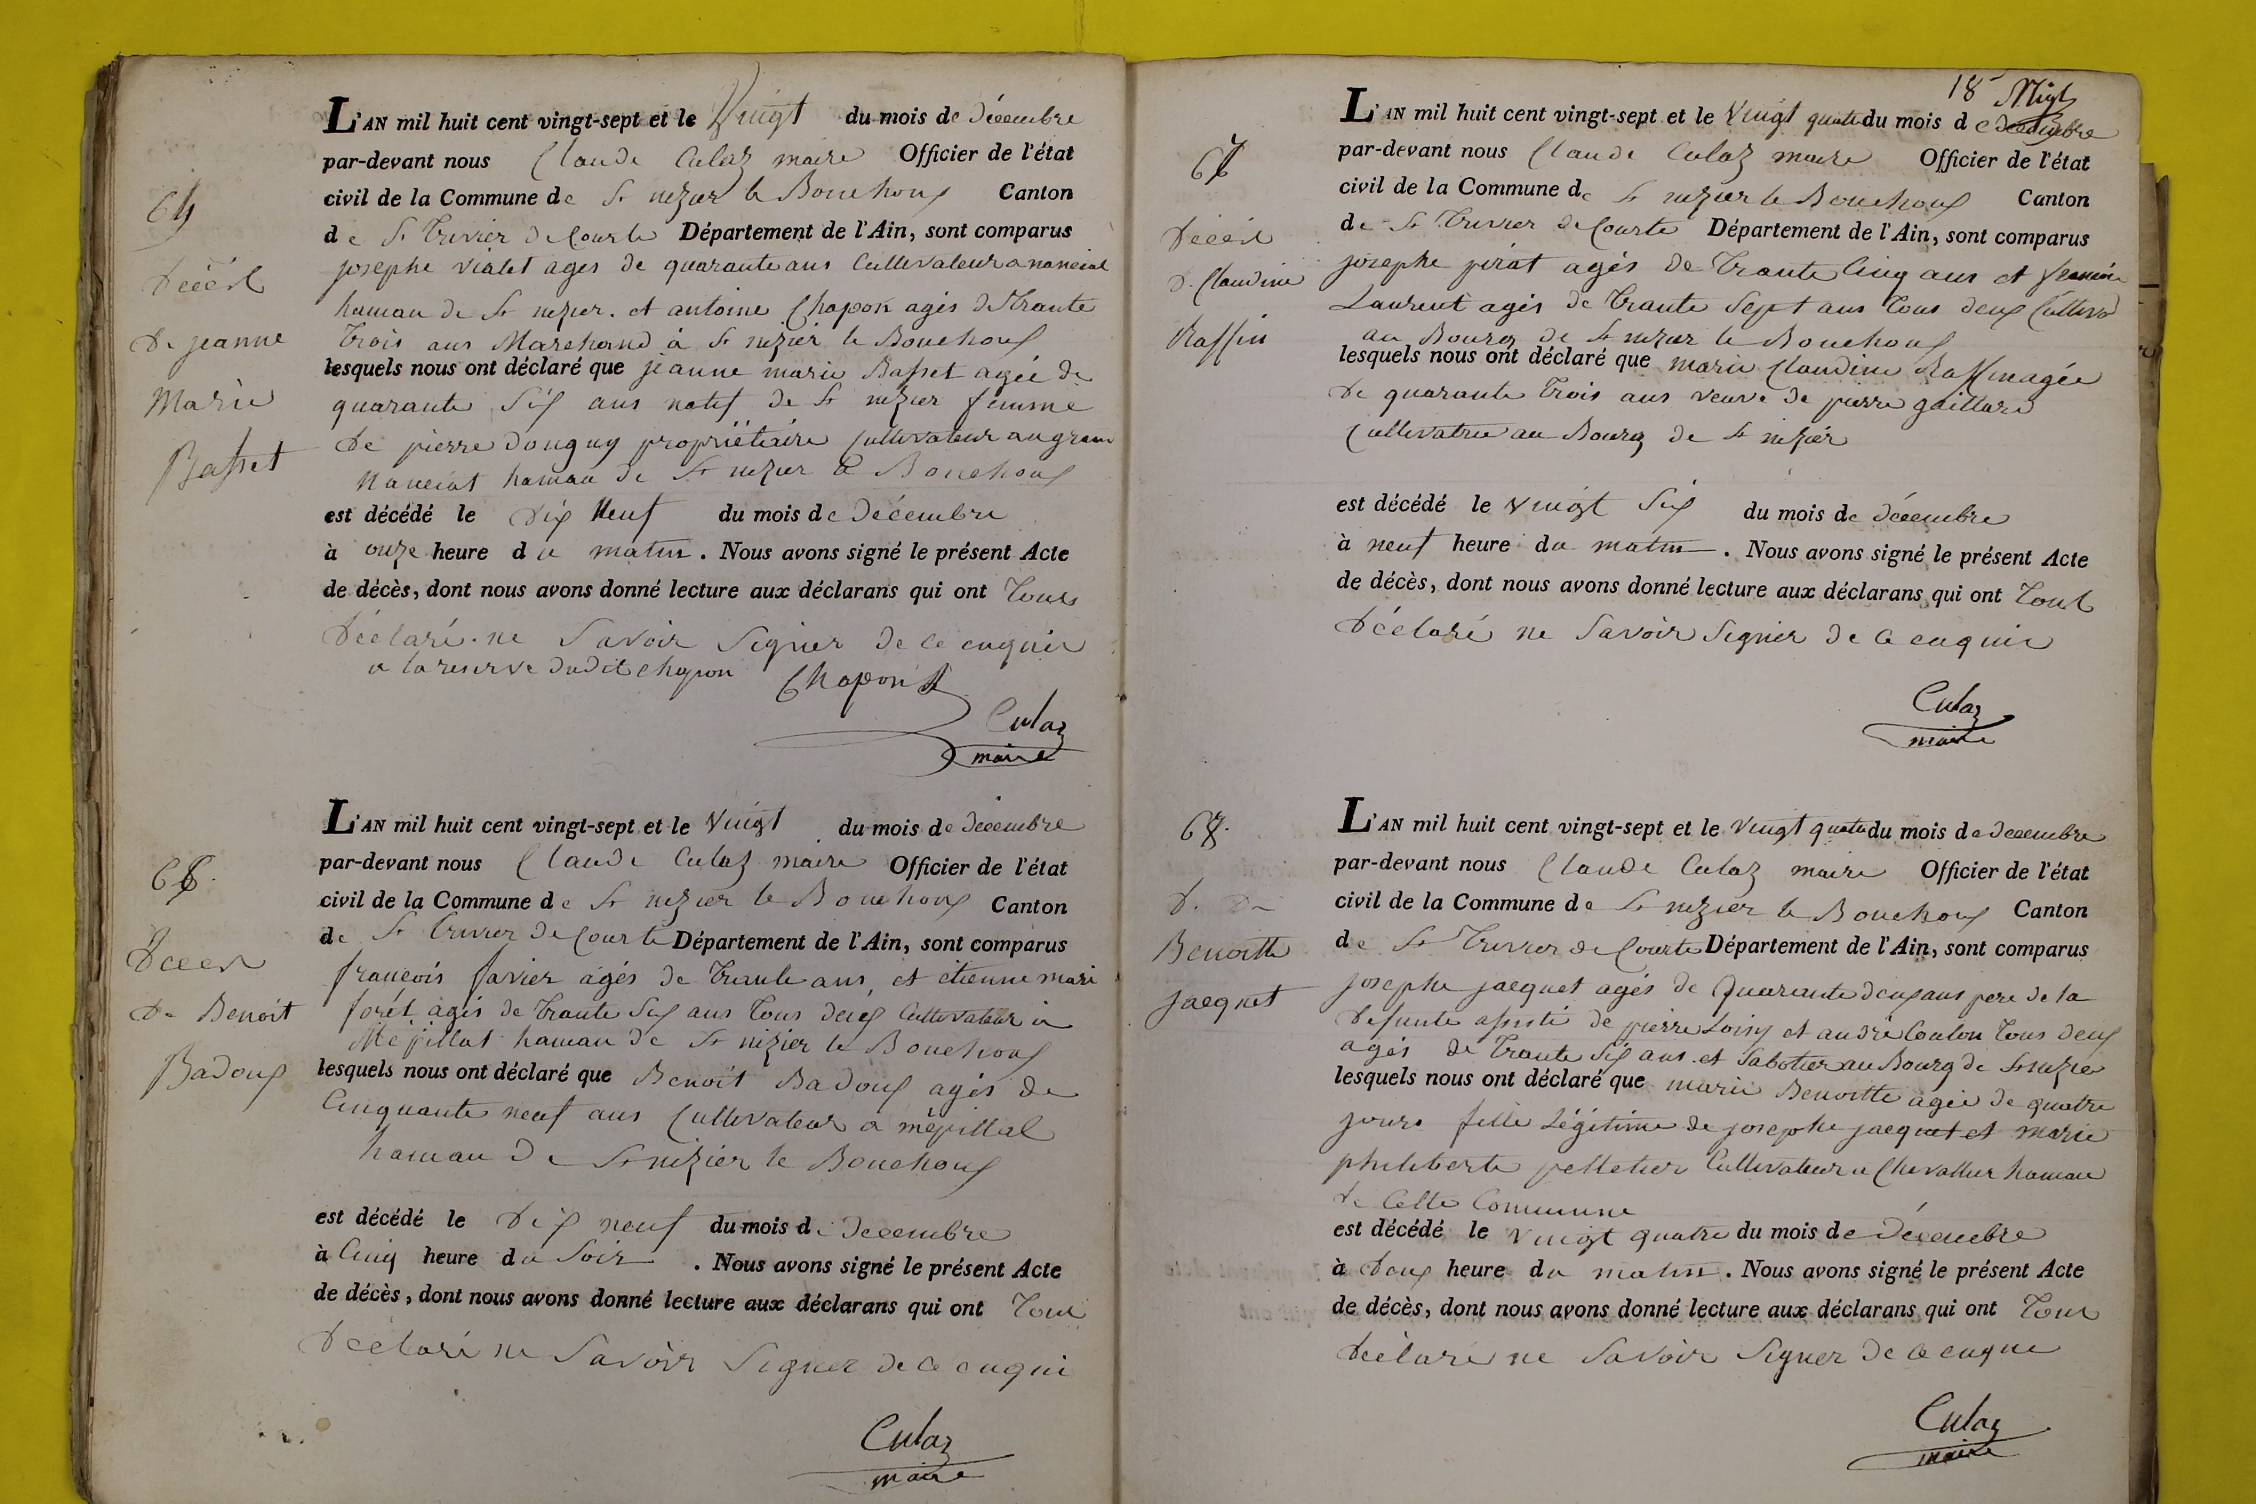 64
Décés
De jeanne
Marie
Basset
L'AN mil huit cent vingt-sept et le Vingt du mois de Décembre
par-devant nous Claude Culaz maire Officier de l'état
civil de la Commune de St nizier le Bouchoux Canton
de St Trivier de Courte Département de l'Ain, sont comparus
josephe vialet agés de quarante ans Cultivateur a nanciat
hamau de St nizier. et antoine Chapon agés de Trante
Trois ans Marchand à St nizier le Bouchoux
lesquels nous ont déclaré que jeanne marie Basset agée de
quarante Six ans natif de St nizier femme
de pierre donguy propriétaire Cultivateur au grand
Nanciat hamau de St nizier le Bouchoux
est décédé le Dix Neuf du mois de Décembre
à onze heure du matin. Nous avons signé le présent Acte
de décès, dont nous avons donné lecture aux déclarans qui ont Tous
Déclaré ne Savoir Signer de ce enquis
a la reserve dudit chapon Chapon
Culaz
maire
Décés
De Benoit
Badoux
L'AN mil huit cent vingt-sept et le Vingt du mois de Décembre
par-devant nous Claude Culaz maire Officier de l'état
civil de la Commune de St nizier le Bouchoux Canton
de St Trivier de Courte Département de l'Ain, sont comparus
françois favier agés de Trante ans, et etienne mari
forét agés de Trante Six ans Tous deux Cultivateur a
Mépillat hamau de St nizier le Bouchoux
lesquels nous ont déclaré que Benoit Badoux agés de
Cinquante neuf ans Cultivateur a mépillat
hamau De St nizier le Bouchoux
est décédé le Dix neuf du mois de Décembre
à Cinq heure du Soir. Nous avons signé le présent Acte
de décès, dont nous avons donné lecture aux déclarans qui ont Tous
Déclaré ne Savoir Signer de ce enqui
Culaz
maire
18
Décés
D. Claudine
Raffin
L'AN mil huit cent vingt-sept et le Vingt quatre du mois de Décembre
par-devant nous Claude Culaz maire Officier de l'état
civil de la Commune de St nizier le Bouchoux Canton
de St Trivier de Courte Département de l'Ain, sont comparus
josephe pirat agés de Trante Cinq ans et
Laurent agés de Trante Sept ans Tous deux Cultiva
au Bourg de St nizier le Bouchoux
lesquels nous ont déclaré que marie Claudine Raffin agée
De quarante Trois ans veuve de pierre gaillard
Cultivatrice au Bourg de St nizier
est décédé le vingt Six du mois de Décembre
à neuf heure du matin. Nous avons signé le présent Acte
de décès, dont nous avons donné lecture aux déclarans qui ont Tous
Déclaré ne Savoir Signer de ce enquis
Culaz
maire
D. De
Benoitte
jacquet
L'AN mil huit cent vingt-sept et le Vingt quatre du mois de Decembre
par-devant nous Claude Culaz maire Officier de l'état
civil de la Commune de St nizier le Bouchoux Canton
de St Trivier de Courte Département de l'Ain, sont comparus
josephe jacquet agés de Quarante deux ans pere de la
Defunte assisté de pierre Loisy et andré Coulon Tous deux
agés de Trante Six ans et Sabotier au Bourg de St nizier
lesquels nous ont déclaré que marie Benoitte agée de quatre
jours fille Légitime de josephe jacquet et marie
philiberte pelletier Cultivateur a Chevallier hamau
De Cette Commune
est décédé le vingt quatre du mois de Décembre
à Deux heure du matin. Nous avons signé le présent Acte
de décès, dont nous avons donné lecture aux déclarans qui ont Tous
Déclaré ne Savoir Signer de ce enque
Culaz
maire